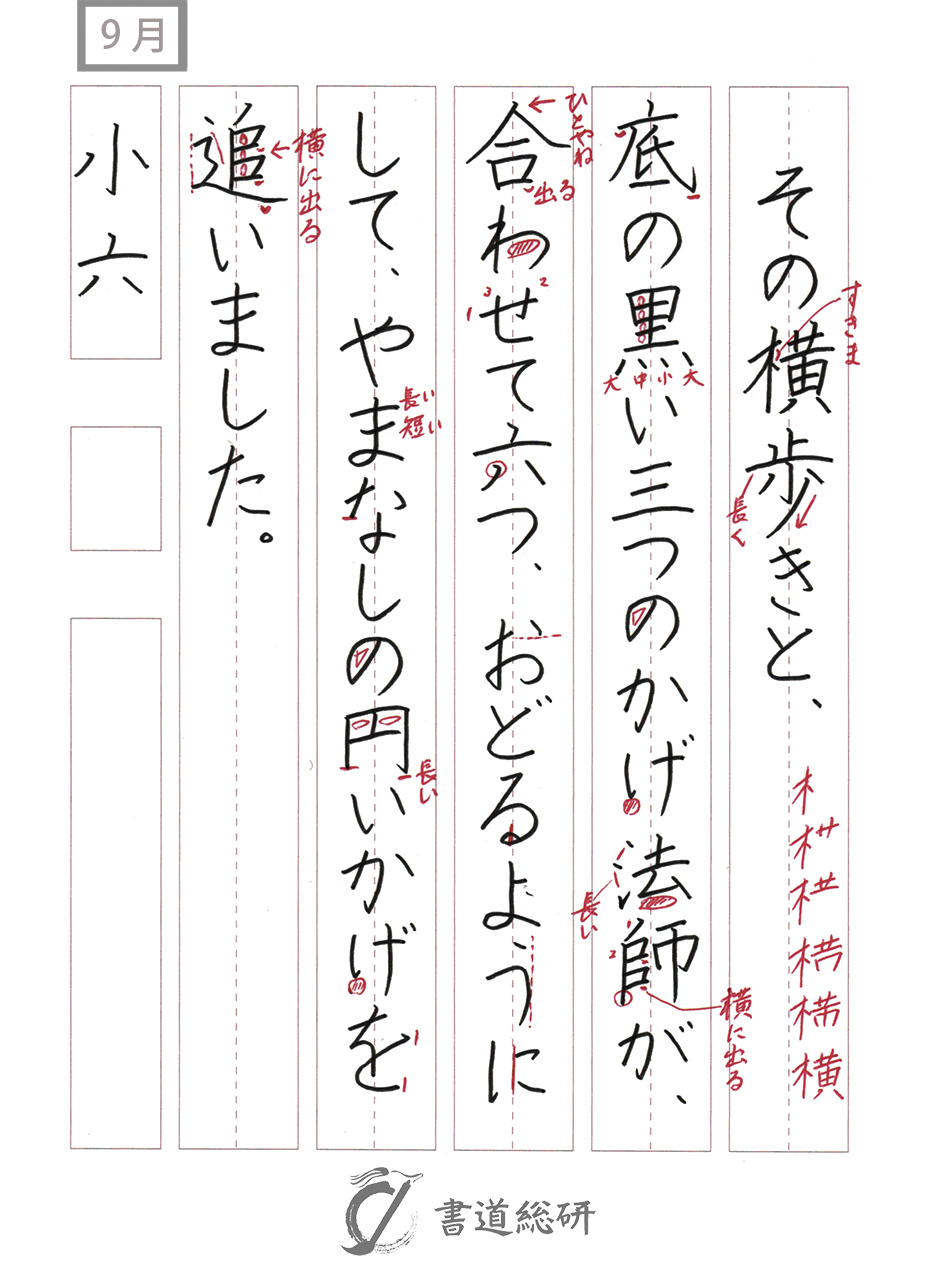 9月
その横歩きと、
すきま
長く
木 横
底の黒い三つのかげ法師が、
大 中 小 大
長い
横に出る
合わせて六つ、おどるように
ひとやね
出る
1 3 2
して、やまなしの円いかげを
長い
短い
長い
追いました。
横に出る
小六
書道総研